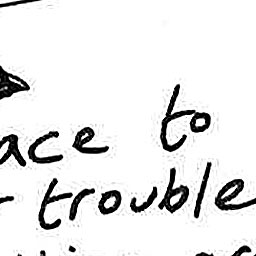 ace to
trouble